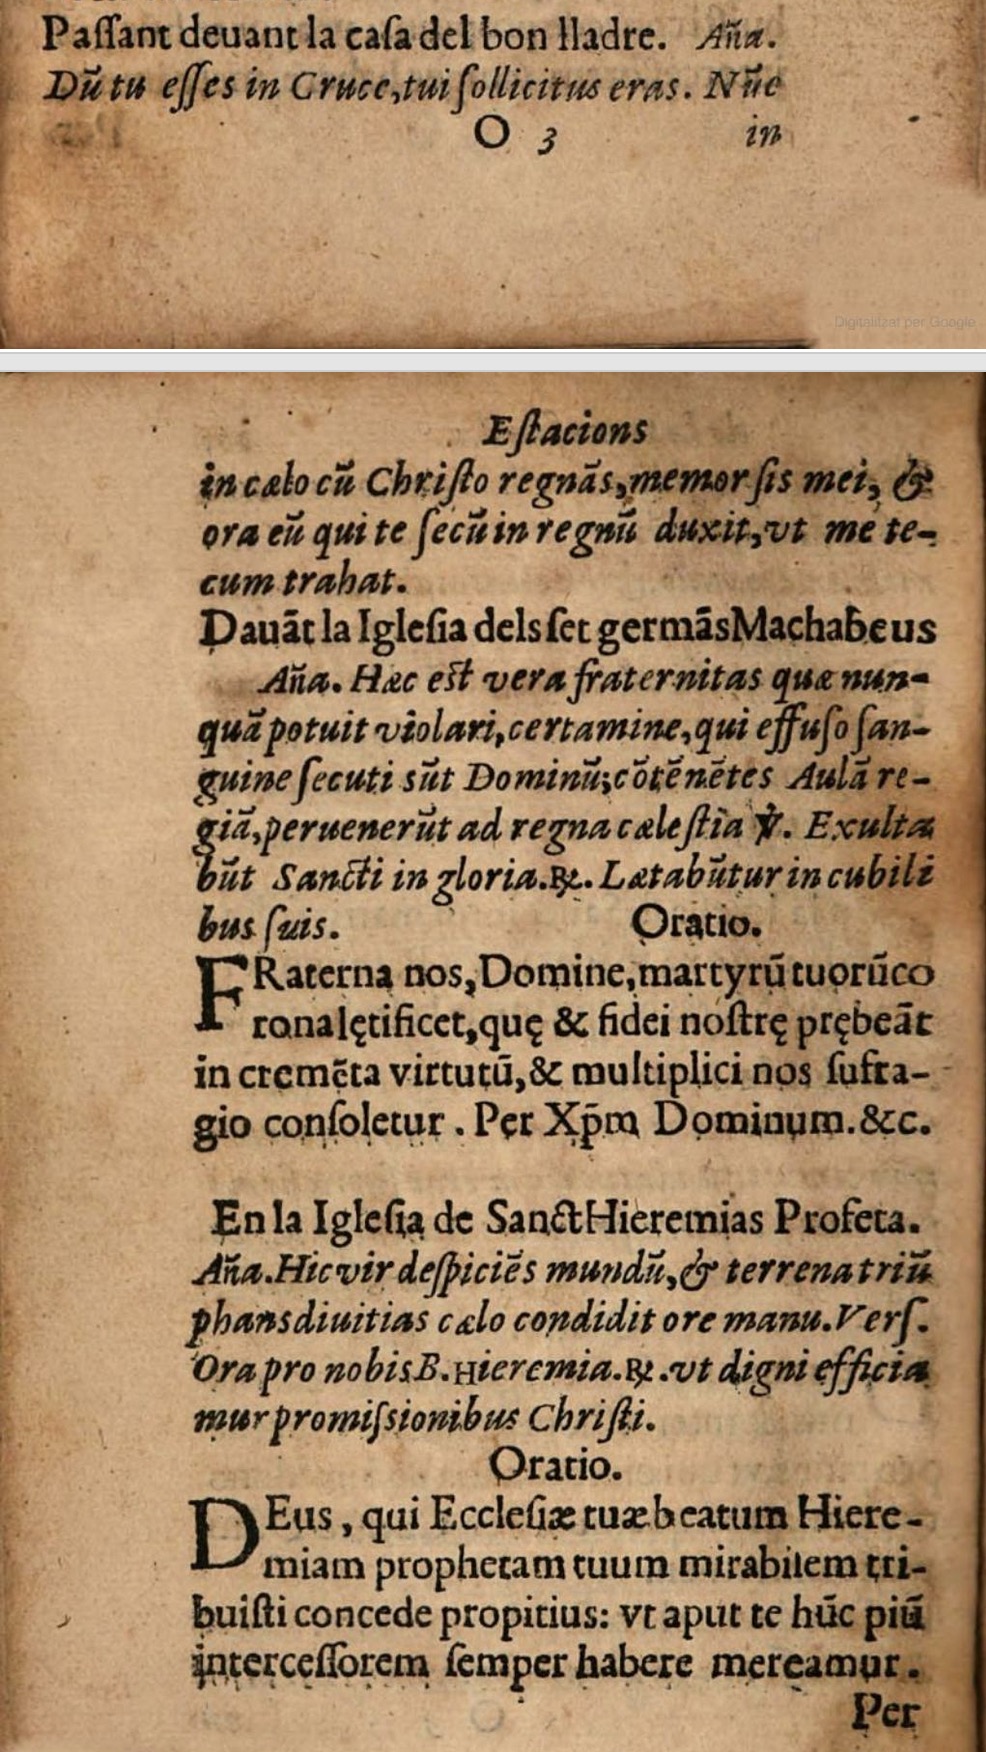 Paſſant deuant la caſa del bon lladre. Aña.
Dũ tu eſſes in Cruce, tui ſollicitus eras. Nũc
O 3 in
Digitalitzat per Google
Eſtacions
in cælo cũ Chriſto regnãs, memor ſis mei, &
ora eũ qui te ſecũ in regnũ duxit, vt me te-
cum trahat.
Dauãt la Igleſia dels ſet germãs Machabeus
Aña. Hæc eſt vera fraternitas quæ nun-
quã potuit violari, certamine, qui effuſo ſan-
guine ſecuti sũt Dominũ; cõtẽnẽtes Aulã re-
giã, peruenerũt ad regna cæleſtia ℣. Exulta
bũt Sancti in gloria. ℟. Lætabũtur in cubili
bus ſuis. Oratio.
FRaterna nos, Domine, martyrũ tuorũ co
rona lętificet, quę & fidei noſtrę prębeãt
in cremẽta virtutũ, & multiplici nos ſufra-
gio conſoletur. Per Xp̃m Dominum. &c.
En la Igleſia de Sanct Hieremias Profeta.
Aña. Hic vir deſpiciẽs mundũ, & terrena triũ
phans diuitias cælo condidit ore manu. Verſ.
Ora pro nobis B. Hieremia. ℟. vt digni efficia
mur promiſsionibus Chriſti.
Oratio.
DEus, qui Eccleſiæ tuæ beatum Hiere-
miam prophetam tuum mirabilem tri-
buiſti concede propitius: vt aput te hũc piũ
interceſſorem ſemper habere mereamur.
Per